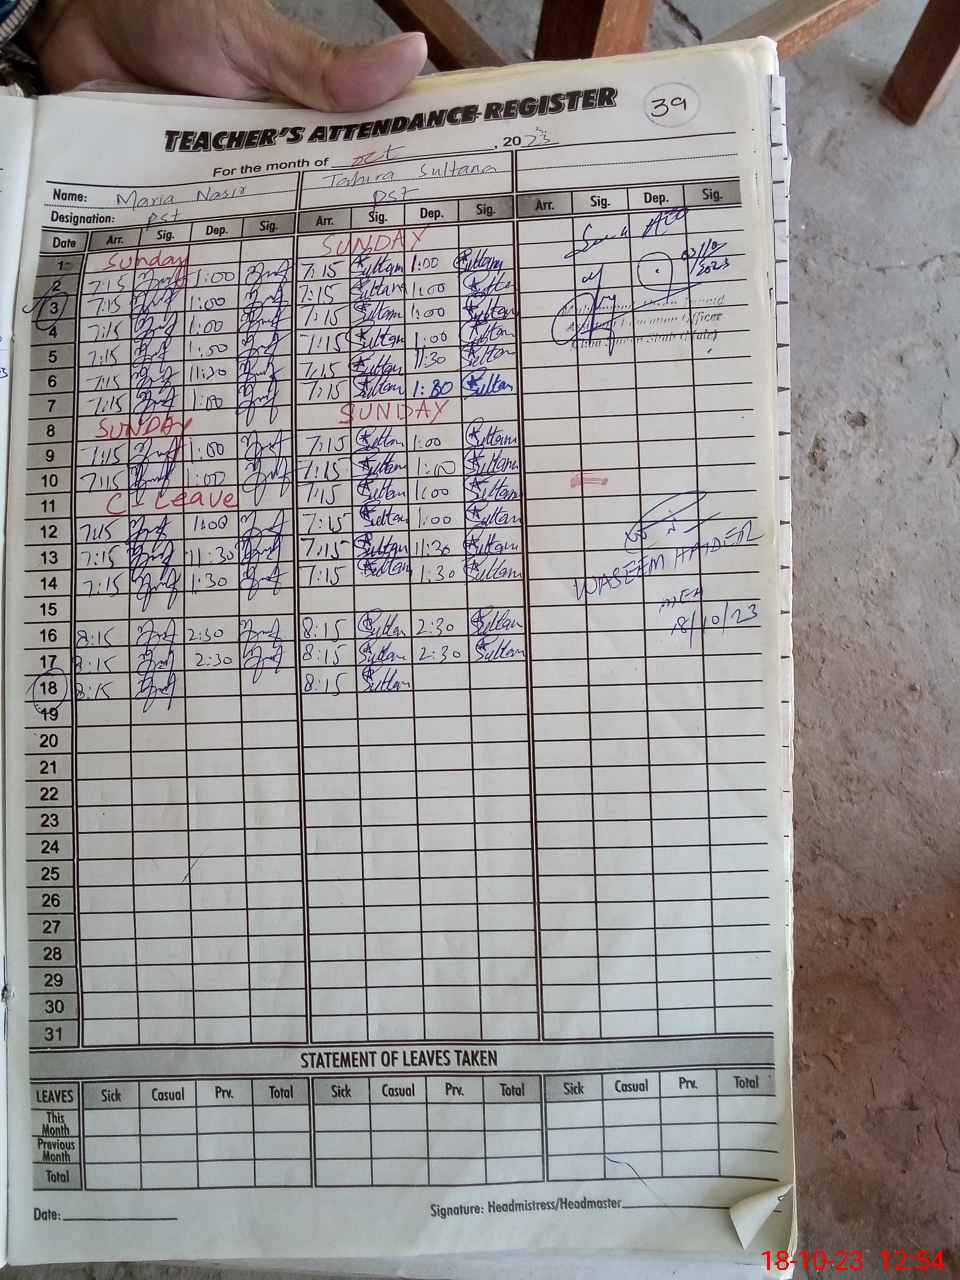 39
TEACHER'S ATTENDANCE REGISTER
For the month of oct, 2023
Name: Maria Nasir Tahira Sultana
Designation: PST PST
Date Arr. Sig. Dep. Sig. Arr. Sig. Dep. Sig. Arr. Sig. Dep. Sig.
1 Sunday SUNDAY
2 7:15 1:00 7:15 Sultana 1:00 Sultana
3 7:15 1:00 7:15 Sultana 1:00 Sultana
4 7:15 1:00 7:15 Sultana 1:00 Sultana
5 7:15 1:00 7:15 Sultana 1:00 Sultana
6 7:15 11:30 7:15 Sultana 11:30 Sultana
7 7:15 1:00 7:15 Sultana 1:30 Sultan
8 SUNDAY SUNDAY
9 7:15 1:00 7:15 Sultana 1:00 Sultana
10 7:15 1:00 7:15 Sultana 1:00 Sultana
11 C I Leave 7:15 Sultana 1:00 Sultana
12 7:15 1:00 7:15 Sultana 1:00 Sultana
13 7:15 11:30 7:15 Sultana 11:30 Sultana
14 7:15 1:30 7:15 Sultana 1:30 Sultana
15
16 8:15 2:30 8:15 Sultan 2:30 Sultana
17 8:15 2:30 8:15 Sultana 2:30 Sultana
18 8:15 8:15 Sultan
19
20
21
22
23
24
25
26
27
28
29
30
31
2023
Officer
WASEEM HAIDER
MEA
18/10/23
STATEMENT OF LEAVES TAKEN
LEAVES Sick Casual Prv. Total Sick Casual Prv. Total Sick Casual Prv. Total
This Month
Previous Month
Total
Date: Signature: Headmistress/Headmaster
18-10-23 12:54